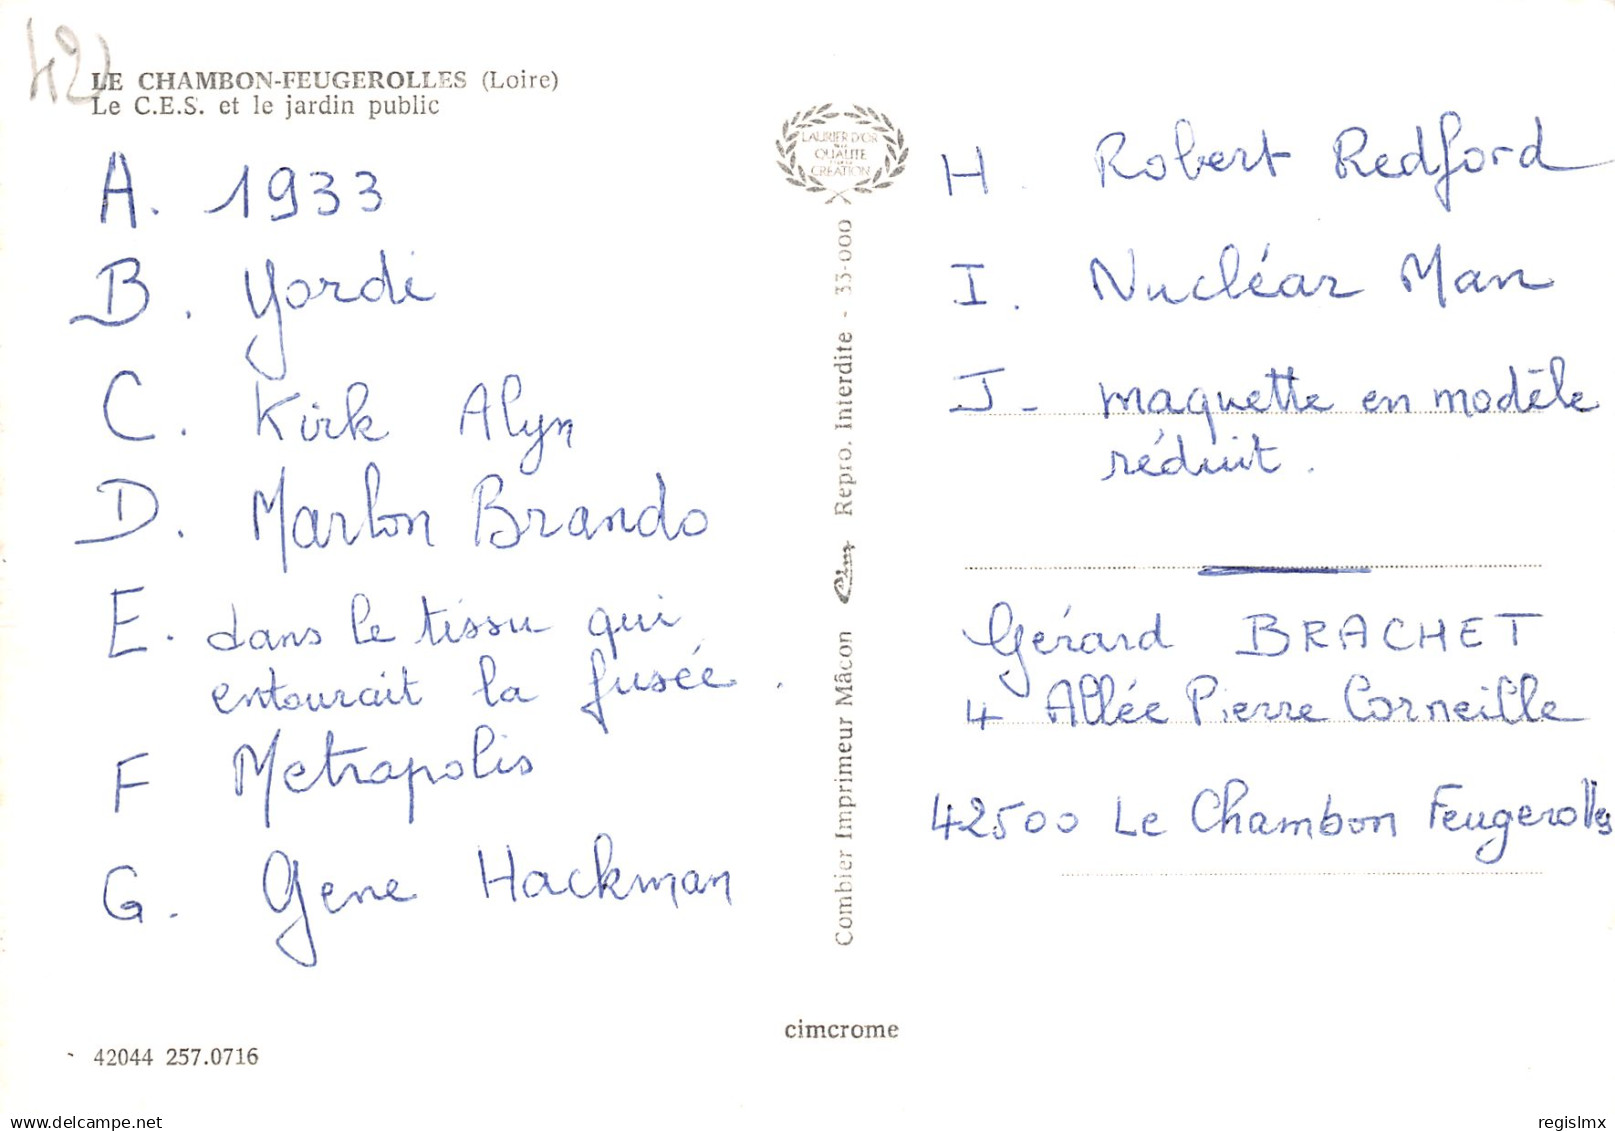 42
LE CHAMBON-FEUGEROLLES (Loire)
Le C.E.S. et le jardin public
A. 1933
B. Yordi
C. Kirk Alyn
D. Marlon Brando
E. dans le tissu qui
entourait la fusée.
F Metrapolis
G. Gene Hackman
42044 257.0716
LAURIER D'OR
DE LA
QUALITE
CREATION
Combier Imprimeur Mâcon Cim Repro. Interdite - 33-000
cimcrome
H. Robert Redford
I. Nucléar Man
J- maquette en modèle
réduit.
Gérard BRACHET
4 Allée Pierre Corneille
42500 Le Chambon Feugerolles
delcampe.net
regislmx